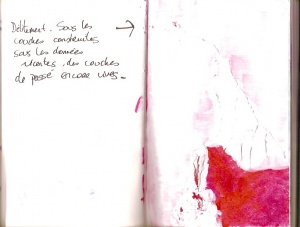 Délitement. Sous les
couches construites
sous les données
vivantes. des couches
de passé encore vives_